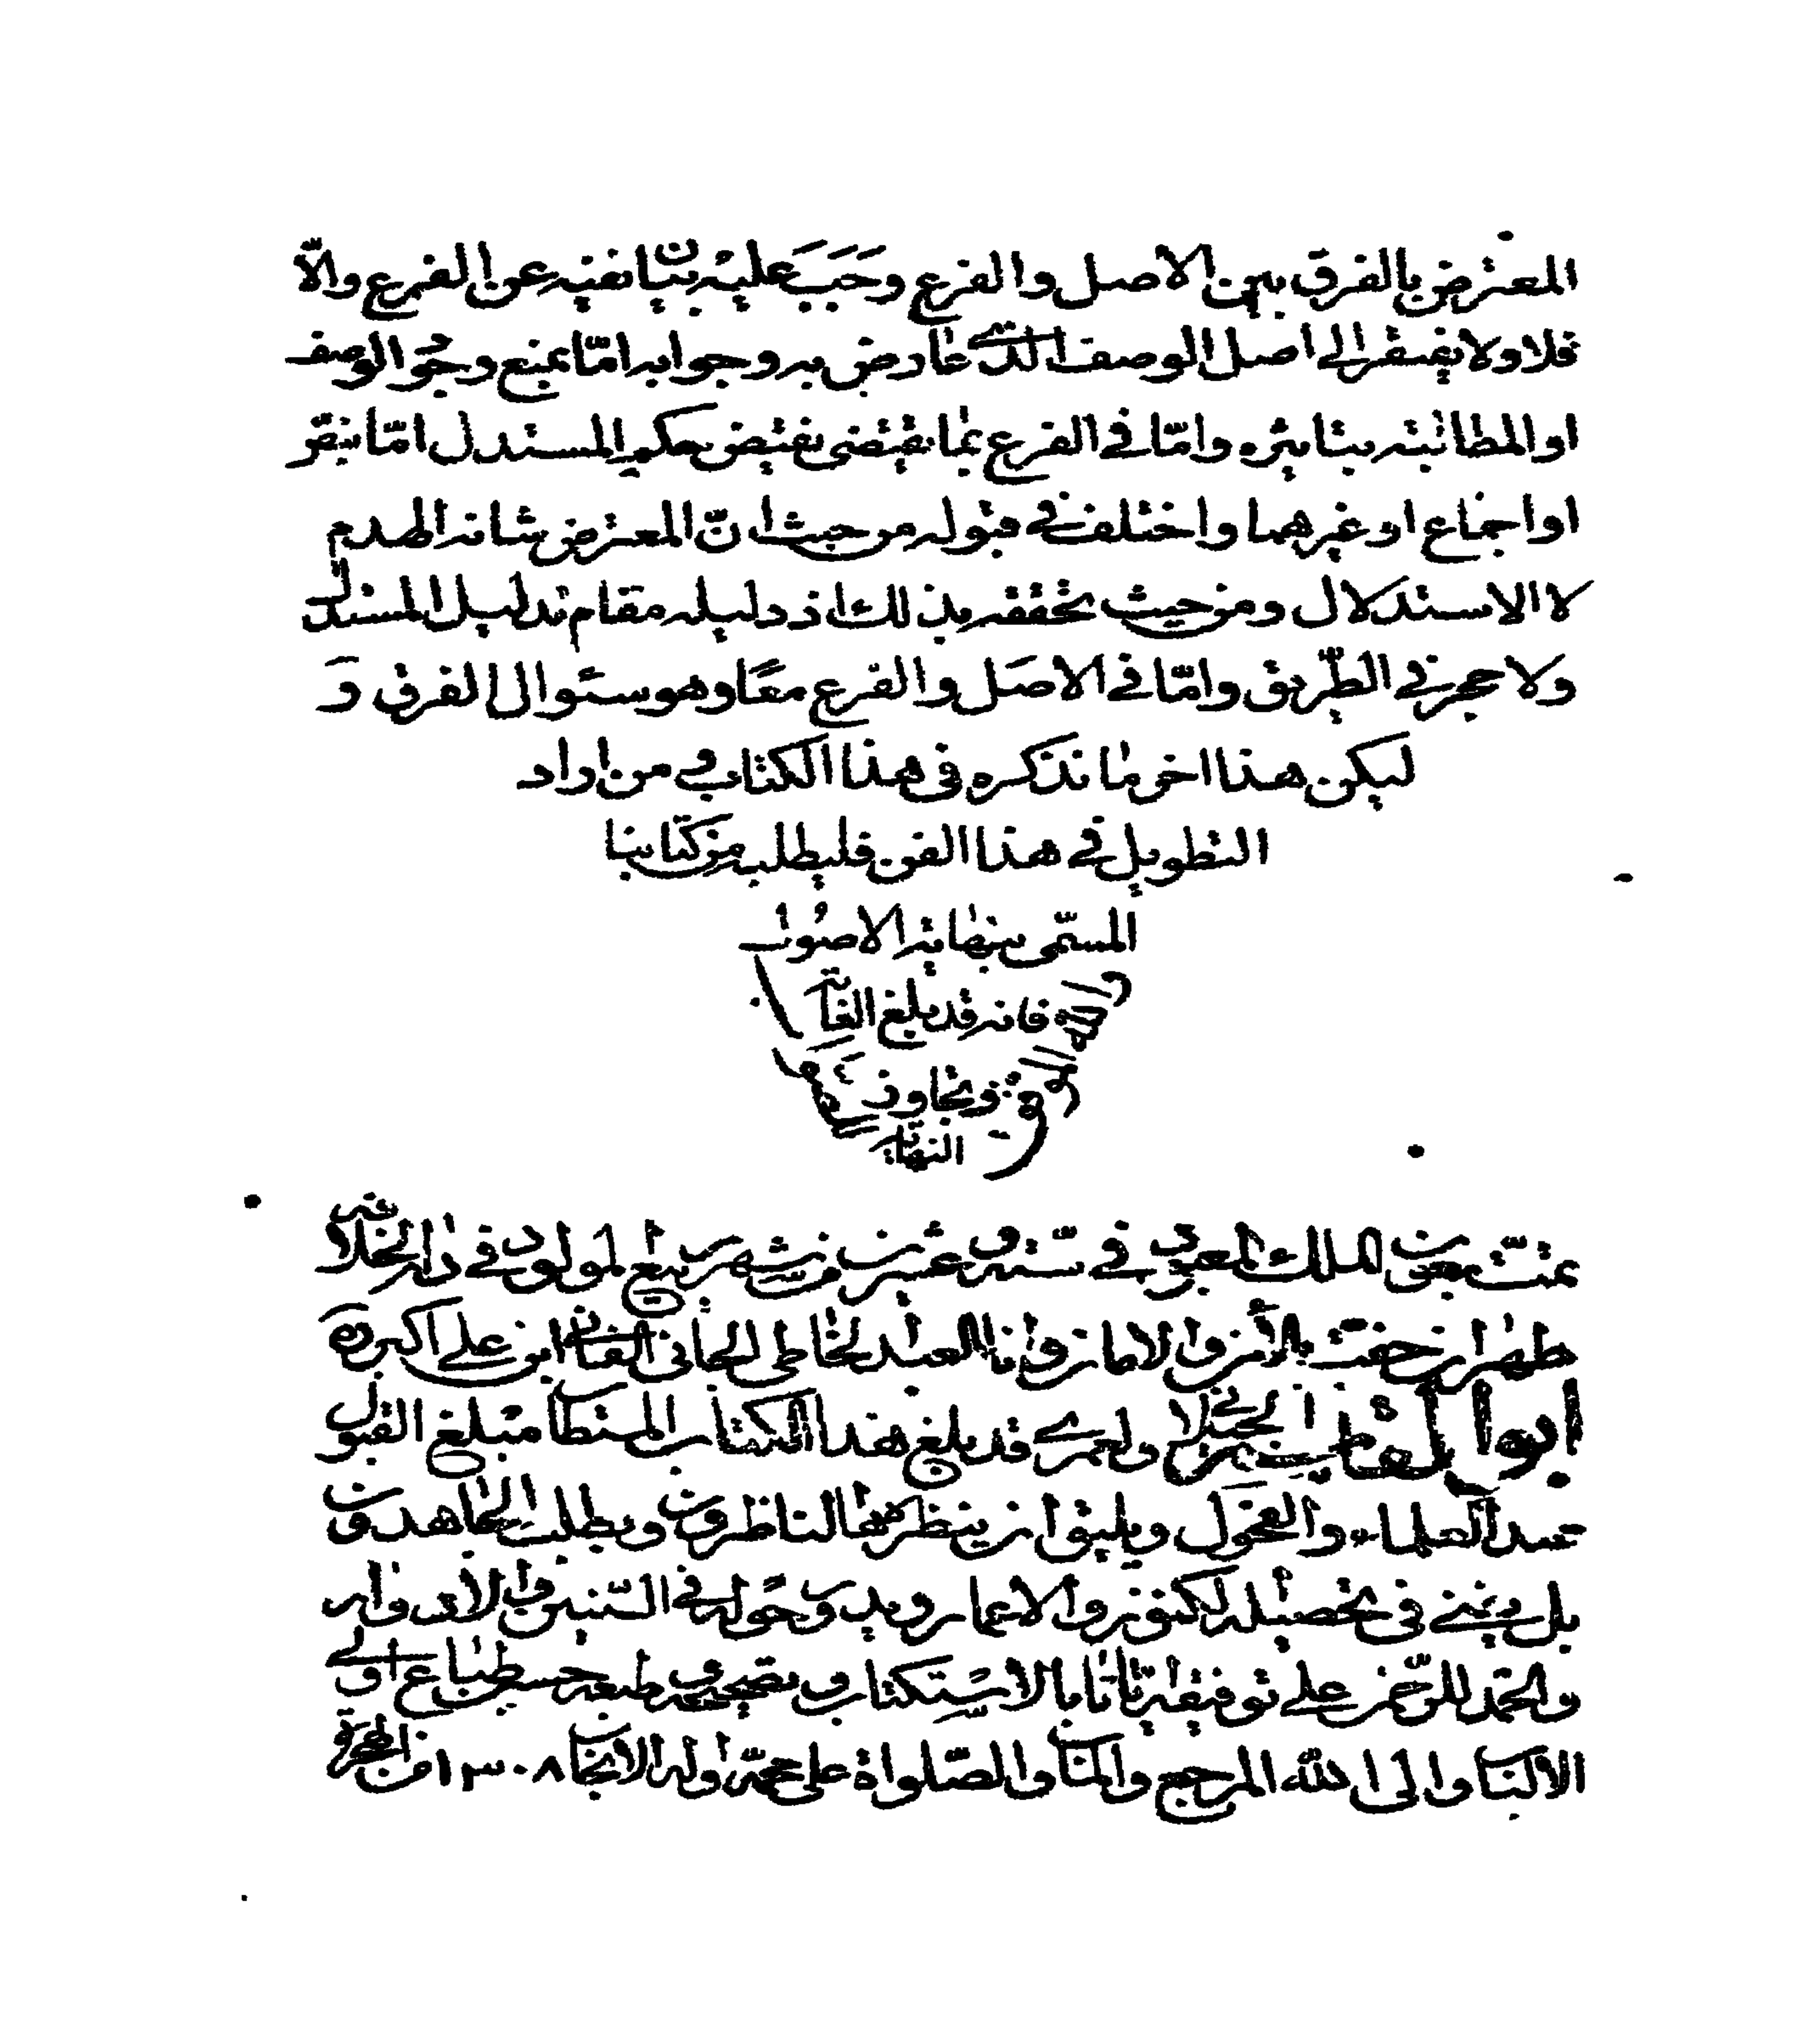 المعترض بالفرق بين الاصل والفرع وَجَبَ عليه بيان نفيه عن الفرع والّا
فلا ولا يفتقر الى اصل الوصف الذى عارض به وجوابه امّا بمنع وجود الوصف
او المطالبة بتاثيره وامّا فى الفرع بما يقتضى نقيض حكم المستدل امّا بنصّ
او اجماع او غيرهما واختلف فى قبوله من حيث انّ المعترض شانه الهدم
لا الاستدلال ومن حيث تحققه بذلك اذ دليله مقام لدليل المستدلّ
ولا حجر فى الطّريق وامّا فى الاصَل والفرع معًا وهو سئوال الفرق وَ
ليكن هذا اخر ما نذكره فى هذا الكتاب و من اراد
التطويل فى هذا الفن فليطلبه من كتابنا
المسمّى بنهاية الاصُول
فانه قد بلغ الغاية
و تجاوز
النهاية
تمّت بعون الملك المعبود فى ستّة وعشرين من شهر ربيع المولود فى دار الخلافة
طهران حفت بالأمن والامان وانا العبد الخاطى الجانى الفانى ابن على اكبر ره
ابوا لقاسم الجيلانى ولعمرى قد بلغ هذا الكتاب المستطاب مبلغ القبول
عند العلماء والفحول ويليق ان ينظر فيها الناظرون ويطلب الجاهدون
بل يفنى فى تحصيله الكنوز والاعمار ويدوحوله فى السّنين والادوار
والحمد للرّحمن على توفيقه ايّانا بالاسْتِكتاب و تصحيحه و طبعه حسن طباع اولى
الالباب والى الله المرجع والمئاب والصّلواة على محمّد واله الانجاب ١٣٠٨ من الهجرة